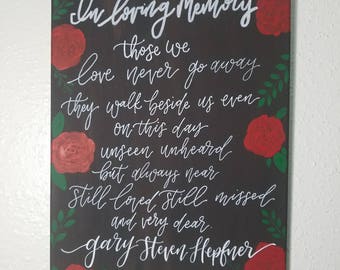 In loving Memory
those we
love never go away
they walk beside us even
on this day
unseen unheard
but always near
still loved still missed
and very dear.
gary Steven Hepfner